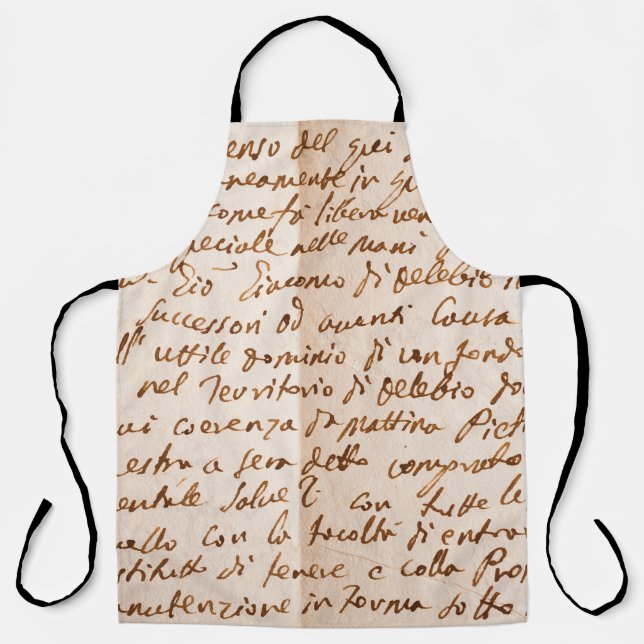 enso del qui
neamente in
come fà libera ven
peciale nelle mani
Gio Giacomo di Delebio
Successori od aventi Causa
uttile dominio di un fondo
nel Territorio di Delebio
coerenza da mattina Piet
estra a sera detto comprato
entile Salue con tutte le
ello con la facoltà di entra
stituto di tenere e colla Pro
anutenzione in forma sotto